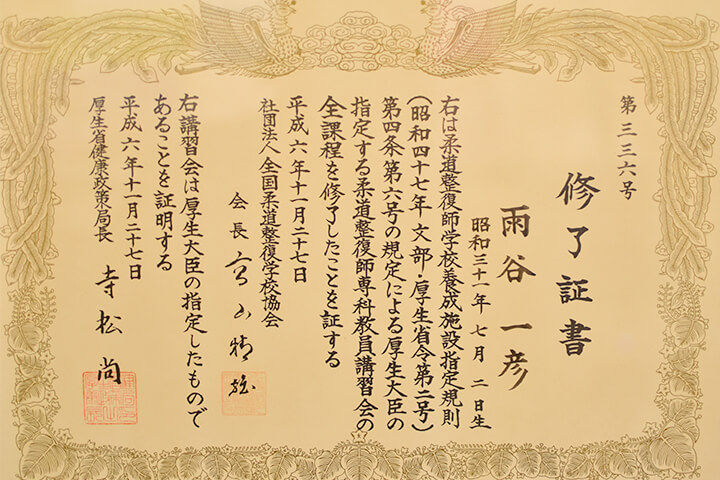 第三三六号
修了証書
雨谷一彦
昭和三十一年七月二日生
右は柔道整復師学校養成施設指定規則
(昭和四十七年文部・厚生省令第二号)
第四条第六号の規定による厚生大臣の
指定する柔道整復師専科教員講習会の
全課程を修了したことを証する
平成六年十一月二十七日
社団法人全国柔道整復学校協会
会長
右講習会は厚生大臣の指定したもので
あることを証明する
平成六年十一月二十七日
厚生省健康政策局長
寺松尚